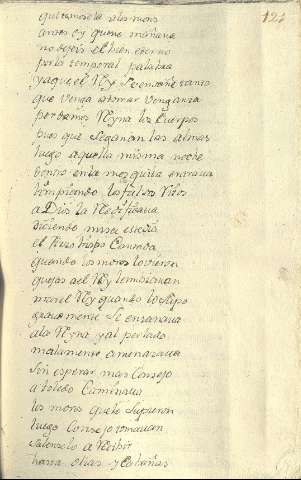 124
quitemosela alos moros
antes oy que no mañana
no dejeis el bien eterno
por la temporal palabra
ya que el Rey se ensañe tanto
que venga a tomar venganza
perdamos Reyna los Cuerpos
pues que se ganan las almas
luego aquella misma noche
dentro en la mezquita entraua
Rompiendo los falsos Ritos
a Dios la Redificaua
diciendo missa en ella
el Arzobispo Cantada
quando los moros lo vieron
quejas a el Rey le embiauan
mas el Rey quando lo supo
grauemente se ensañaua
a la Reyna y al perlado
malamente amenazaua
sin esperar mas Consejo
a toledo Caminaua
los moros que lo supieron
luego Consejo tomauan
salenselo a Recibir
hasta olias y Cabañas